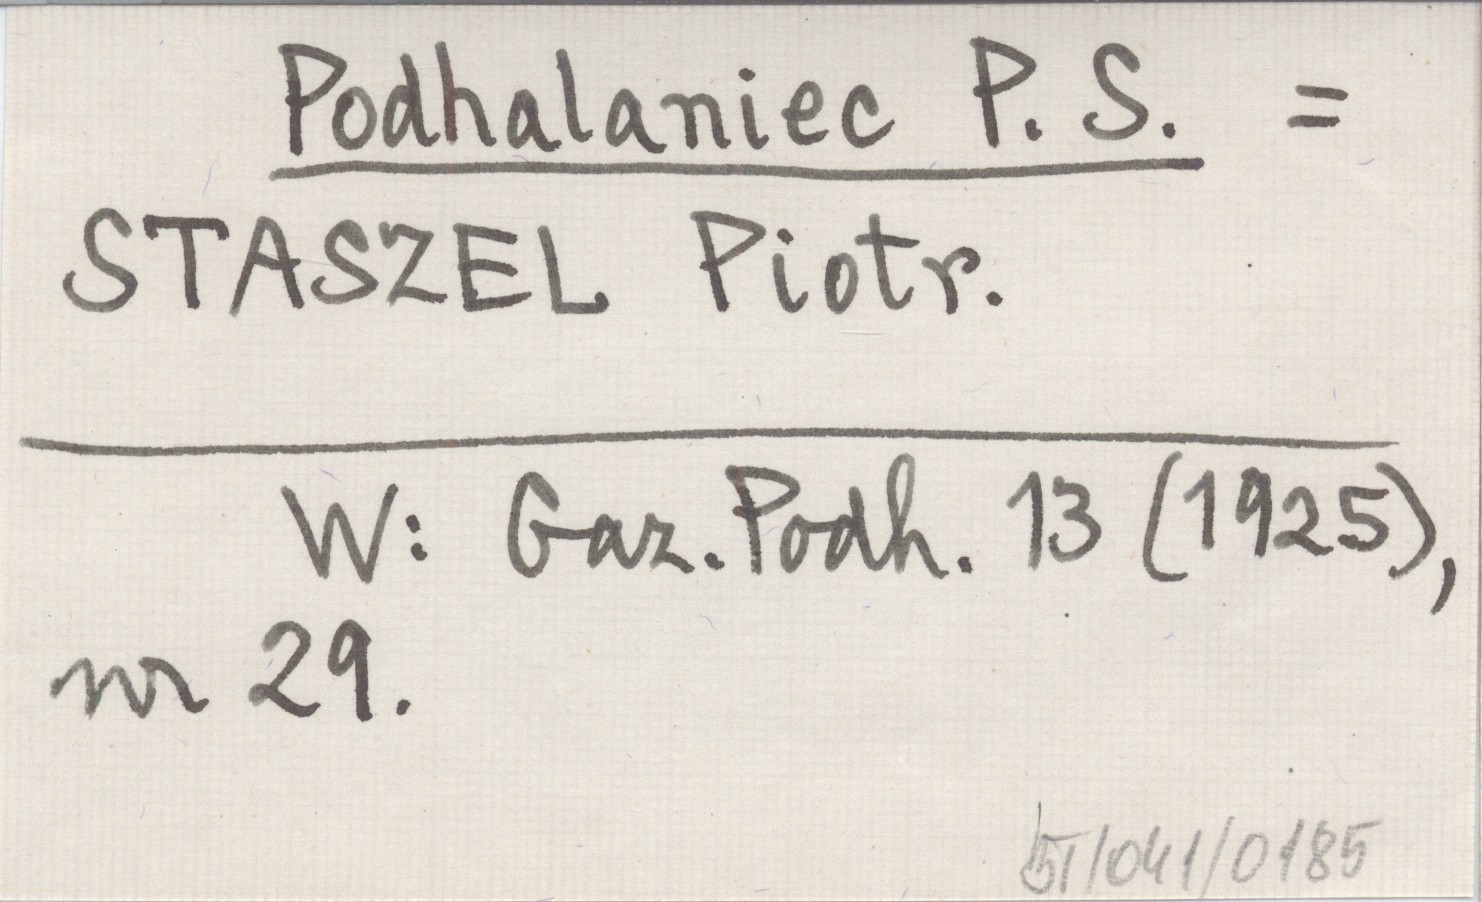 Podhalaniec P. S. =
STASZEL Piotr.
W: Gaz. Podh. 13 (1925),
nr 29.
/041/0185